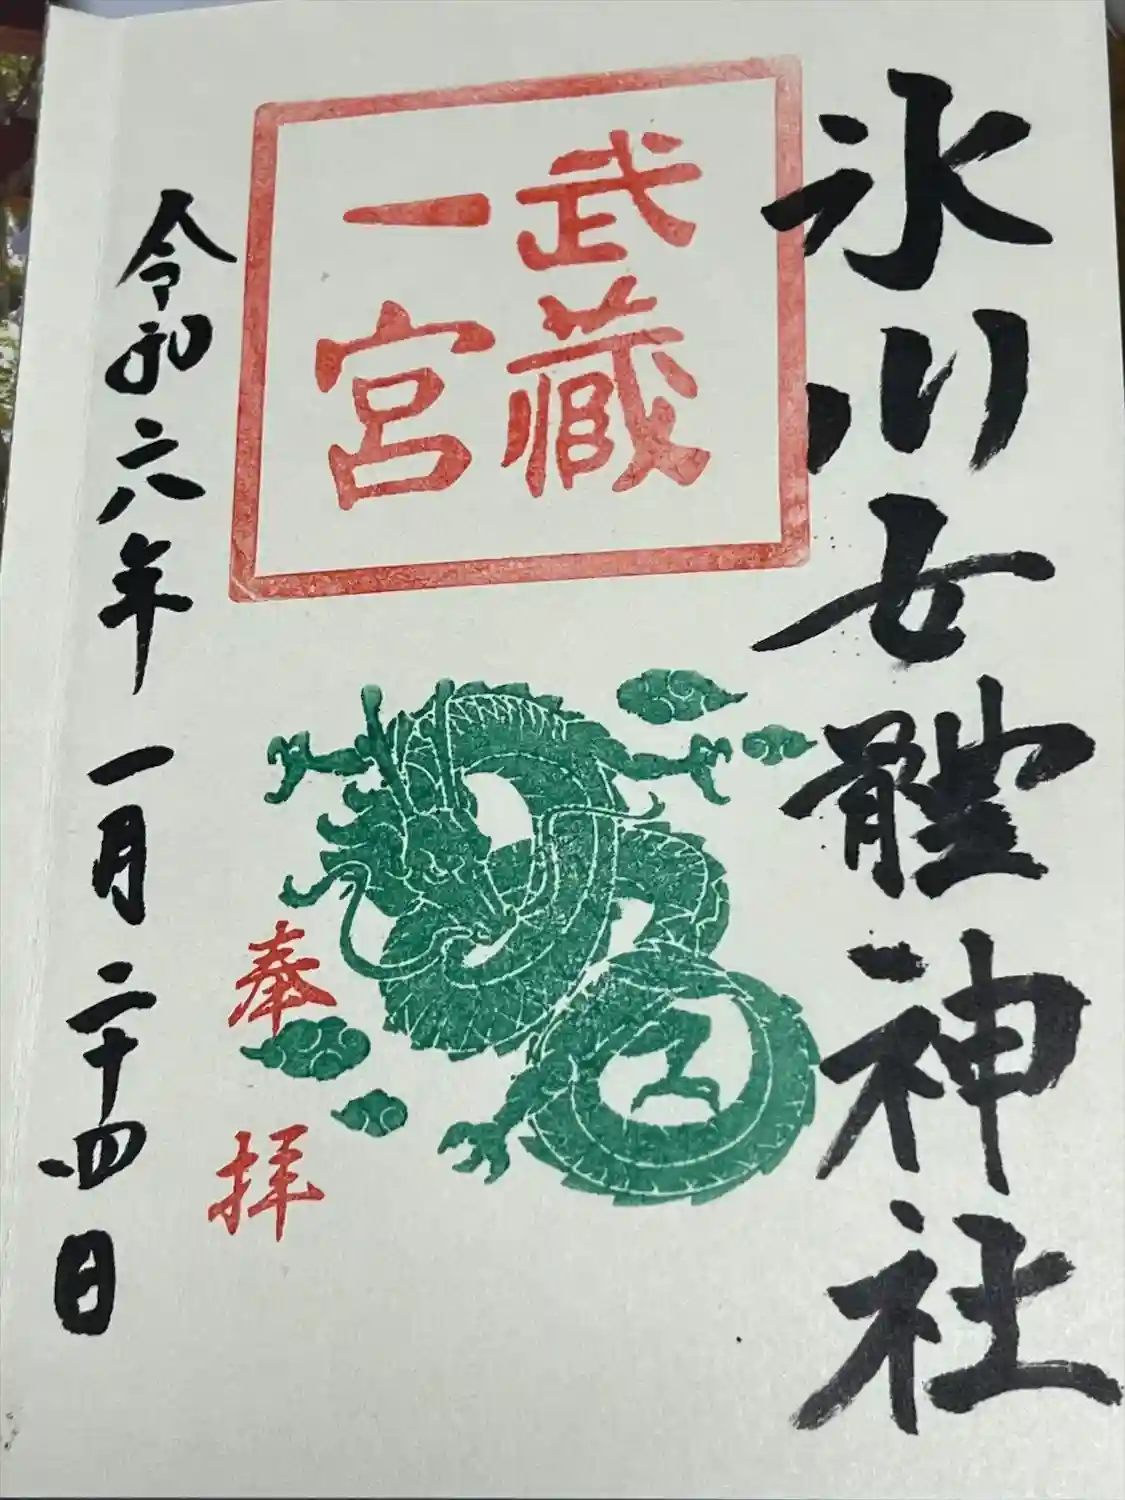 氷川女體神社
武藏
一宮
奉拝
令和六年一月二十四日